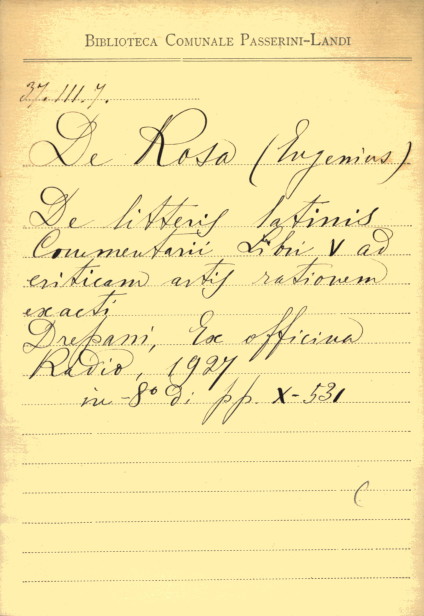 Biblioteca Comunale Passerini-Landi
37.III.7.
De Rosa (Eugenius)
De litteris latinis
Commentarii Libri V ad
criticam artis rationem
exacti
Drepani, Ex officina
Radio, 1927
in-8° di pp. X-531